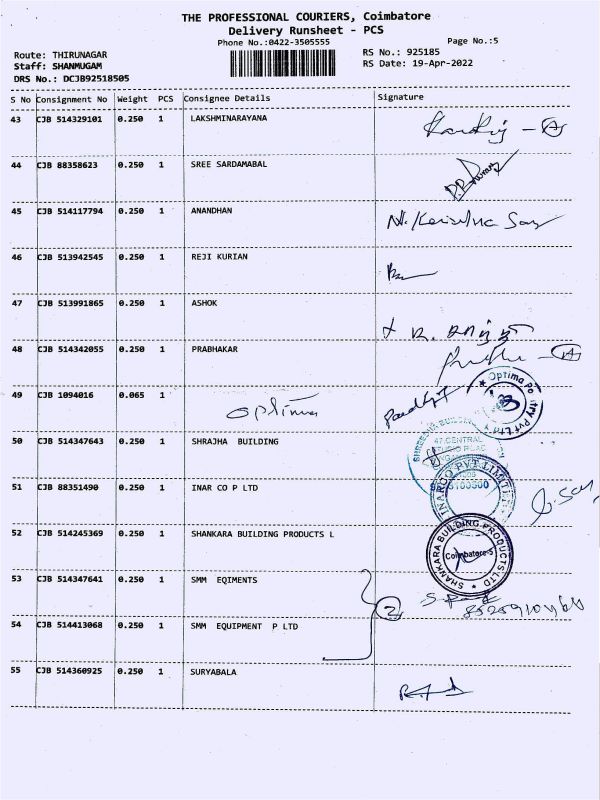 THE PROFESSIONAL COURIERS, Coimbatore
Delivery Runsheet - PCS
Phone No.:0422-3505555
Page No.:5
Route: THIRUNAGAR
RS No.: 925185
Staff: SHANMUGAM
RS Date: 19-Apr-2022
DRS No.: DCJB92518505
S No Consignment No Weight PCS Consignee Details Signature
43 CJB 514329101 0.250 1 LAKSHMINARAYANA
44 CJB 88358623 0.250 1 SREE SARDAMABAL
45 CJB 514117794 0.250 1 ANANDHAN
46 CJB 513942545 0.250 1 REJI KURIAN
47 CJB 513991865 0.250 1 ASHOK
48 CJB 514342055 0.250 1 PRABHAKAR
49 CJB 1094016 0.065 1 optima
50 CJB 514347643 0.250 1 SHRAJHA BUILDING
51 CJB 88351490 0.250 1 INAR CO P LTD
52 CJB 514245369 0.250 1 SHANKARA BUILDING PRODUCTS L
SHANKARA BUILDING PRODUCTS LTD
Coimbatore-5
53 CJB 514347641 0.250 1 SMM EQIMENTS
2
54 CJB 514413068 0.250 1 SMM EQUIPMENT P LTD
55 CJB 514360925 0.250 1 SURYABALA